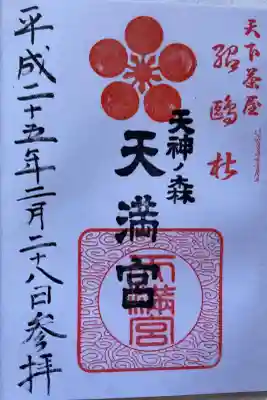 天下茶屋
紹鴎杜
天神ノ森
天満宮
天満宮
平成二十五年二月二十八日参拝